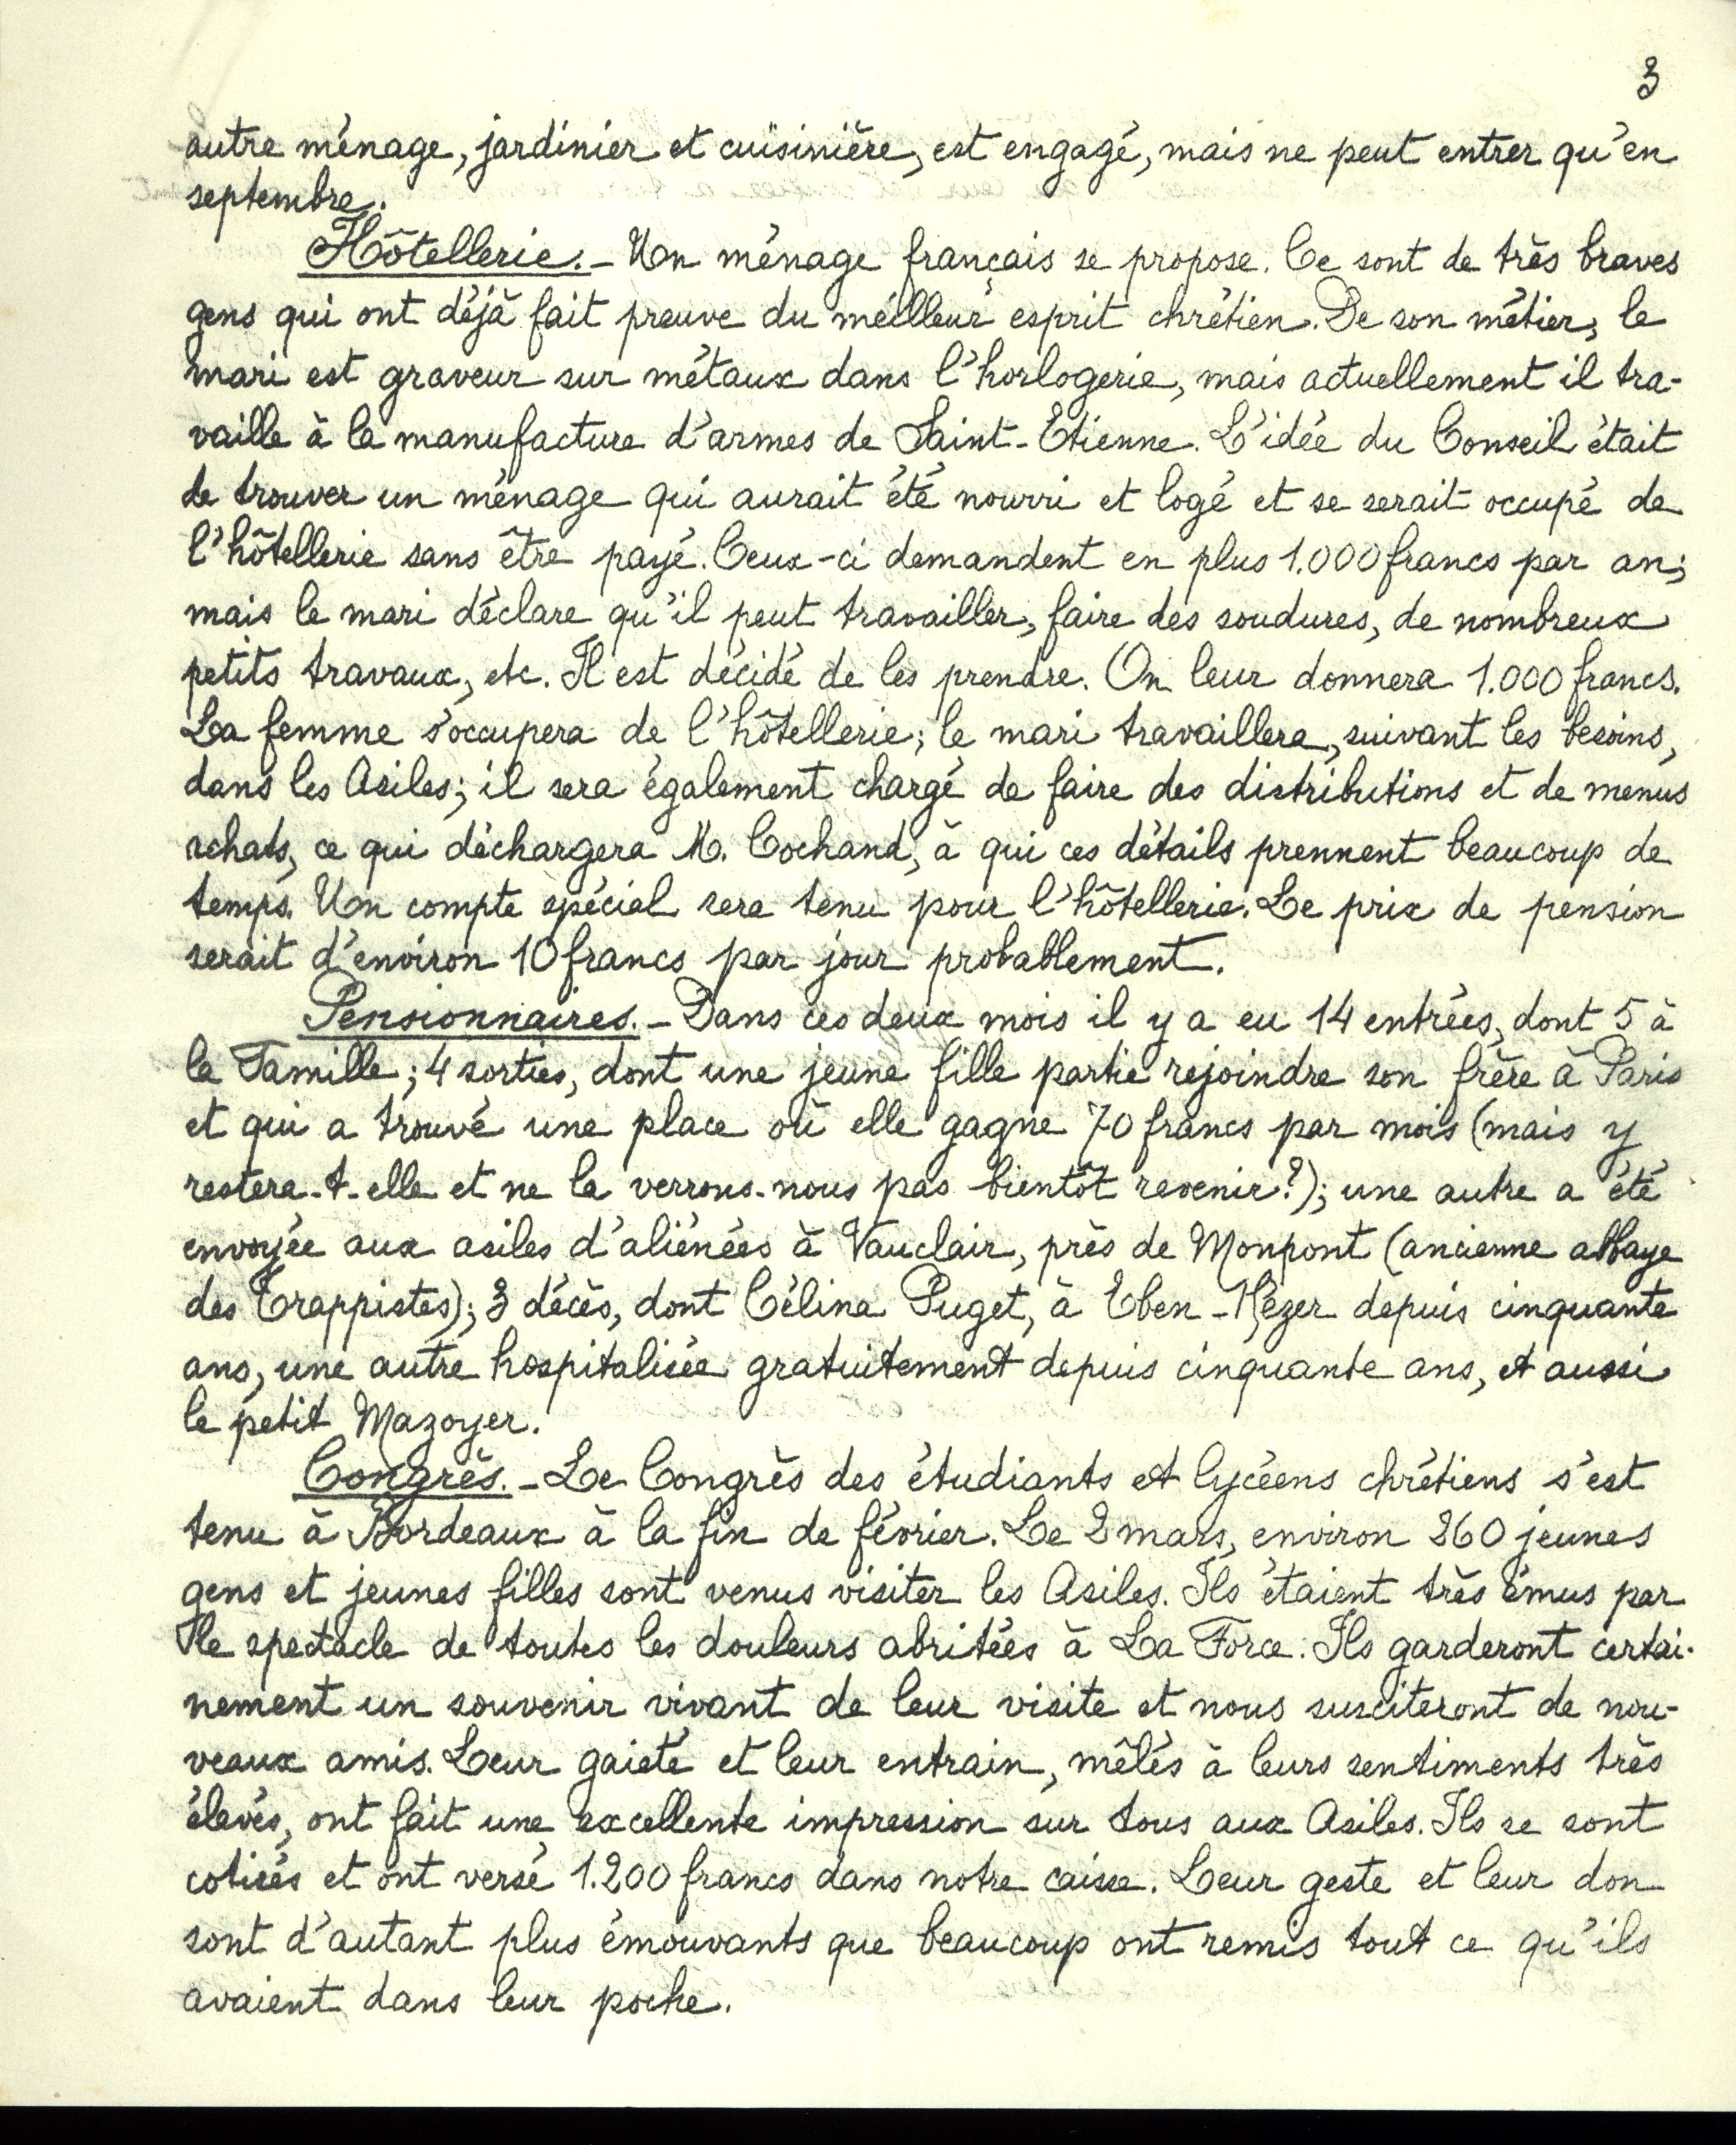 3
autre ménage, jardinier et cuisinière, est engagé, mais ne peut entrer qu'en
septembre.
Hôtellerie.- Un ménage français se propose. Ce sont de très braves
gens qui ont déjà fait preuve du meilleur esprit chrétien. De son métier, le
mari est graveur sur métaux dans l'horlogerie, mais actuellement il tra-
vaille à la manufacture d'armes de Saint-Etienne. L'idée du Conseil était
de trouver un ménage qui aurait été nourri et logé et se serait occupé de
l'hôtellerie sans être payé. Ceux-ci demandent en plus 1.000 francs par an;
mais le mari déclare qu'il peut travailler, faire des soudures, de nombreux
petits travaux, etc. Il est décidé de les prendre. On leur donnera 1.000 francs.
La femme s'occupera de l'hôtellerie; le mari travaillera, suivant les besoins,
dans les Asiles; il sera également chargé de faire des distributions et de menus
achats, ce qui déchargera M. Cochand, à qui ces détails prennent beaucoup de
temps. Un compte spécial sera tenu pour l'hôtellerie. Le prix de pension
serait d'environ 10 francs par jour probablement.
Pensionnaires.- Dans ces deux mois il y a eu 14 entrées, dont 5 à
la Famille; 4 sorties, dont une jeune fille partie rejoindre son frère à Paris
et qui a trouvé une place où elle gagne 70 francs par mois (mais y
restera-t-elle et ne la verrons-nous pas bientôt revenir?); une autre a été
envoyée aux asiles d'aliénées à Vauclair, près de Monpont (ancienne abbaye
des Trappistes); 3 décès, dont Célina Puget, à Eben-Hézer depuis cinquante
ans, une autre hospitalisée gratuitement depuis cinquante ans, et aussi
le petit Mazoyer.
Congrès.- Le Congrès des étudiants et lycéens chrétiens s'est
tenu à Bordeaux à la fin de février. Le 2 mars, environ 260 jeunes
gens et jeunes filles sont venus visiter les Asiles. Ils étaient très émus par
le spectacle de toutes les douleurs abritées à La Force. Ils garderont certai-
nement un souvenir vivant de leur visite et nous susciteront de nou-
veaux amis. Leur gaieté et leur entrain, mêlés à leurs sentiments très
élevés, ont fait une excellente impression sur tous aux Asiles. Ils se sont
cotisés et ont versé 1.200 francs dans notre caisse. Leur geste et leur don
sont d'autant plus émouvants que beaucoup ont remis tout ce qu'ils
avaient dans leur poche.